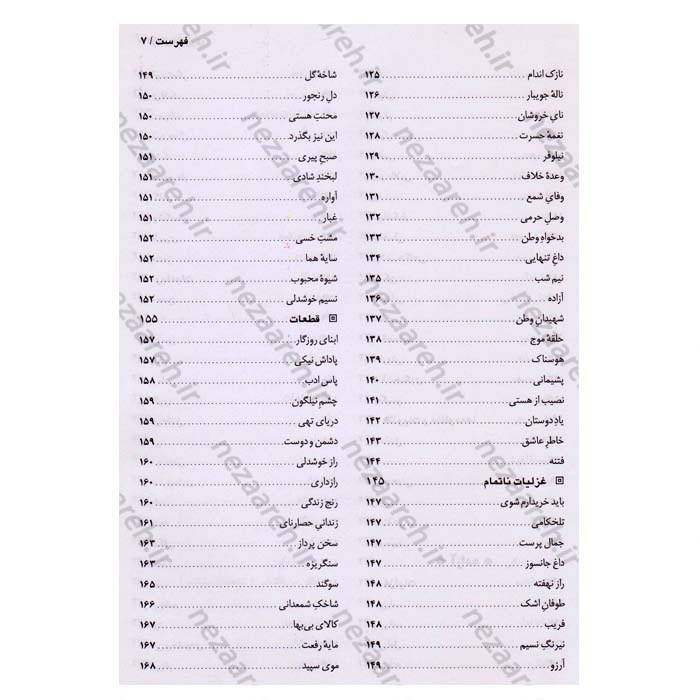 فهرست / ۷
نازک اندام ۱۲۵
نالهٔ جویبار ۱۲۶
نای خروشان ۱۲۷
نغمهٔ حسرت ۱۲۸
نیلوفر ۱۲۹
وعدهٔ خلاف ۱۳۰
وفایِ شمع ۱۳۱
وصلِ حرمی ۱۳۲
بدخواهِ وطن ۱۳۳
داغِ تنهایی ۱۳۴
نیم شب ۱۳۵
آزاده ۱۳۶
شهیدانِ وطن ۱۳۷
حلقهٔ موج ۱۳۸
هوسناک ۱۳۹
پشیمانی ۱۴۰
نصیب از هستی ۱۴۱
یادِ دوستان ۱۴۲
خاطرِ عاشق ۱۴۳
فتنه ۱۴۴
غزلیات ناتمام ۱۴۵
باید خریدارم شوی ۱۴۷
تلخکامی ۱۴۷
جمال پرست ۱۴۷
داغ جانسوز ۱۴۷
راز نهفته ۱۴۸
طوفانِ اشک ۱۴۸
فریب ۱۴۸
نیرنگِ نسیم ۱۴۹
آرزو ۱۴۹
شاخهٔ گل ۱۴۹
دلِ رنجور ۱۵۰
محنتِ هستی ۱۵۰
این نیز بگذرد ۱۵۰
صبحِ پیری ۱۵۱
لبخندِ شادی ۱۵۱
آواره ۱۵۱
غبار ۱۵۱
مشتِ خسی ۱۵۲
سایهٔ هما ۱۵۲
شیوهٔ محبوب ۱۵۲
نسیم خوشدلی ۱۵۲
قطعات ۱۵۵
ابنای روزگار ۱۵۷
پاداش نیکی ۱۵۷
پاس ادب ۱۵۸
چشمِ نیلگون ۱۵۹
دریای تهی ۱۵۹
دشمن و دوست ۱۵۹
راز خوشدلی ۱۶۰
رازداری ۱۶۰
رنج زندگی ۱۶۰
زندانیِ حصارنای ۱۶۱
سخن پرداز ۱۶۳
سنگریزه ۱۶۳
سوگند ۱۶۵
شاخکِ شمعدانی ۱۶۶
کالای بی‌بها ۱۶۷
مایهٔ رفعت ۱۶۷
موی سپید ۱۶۸
nezaareh.ir